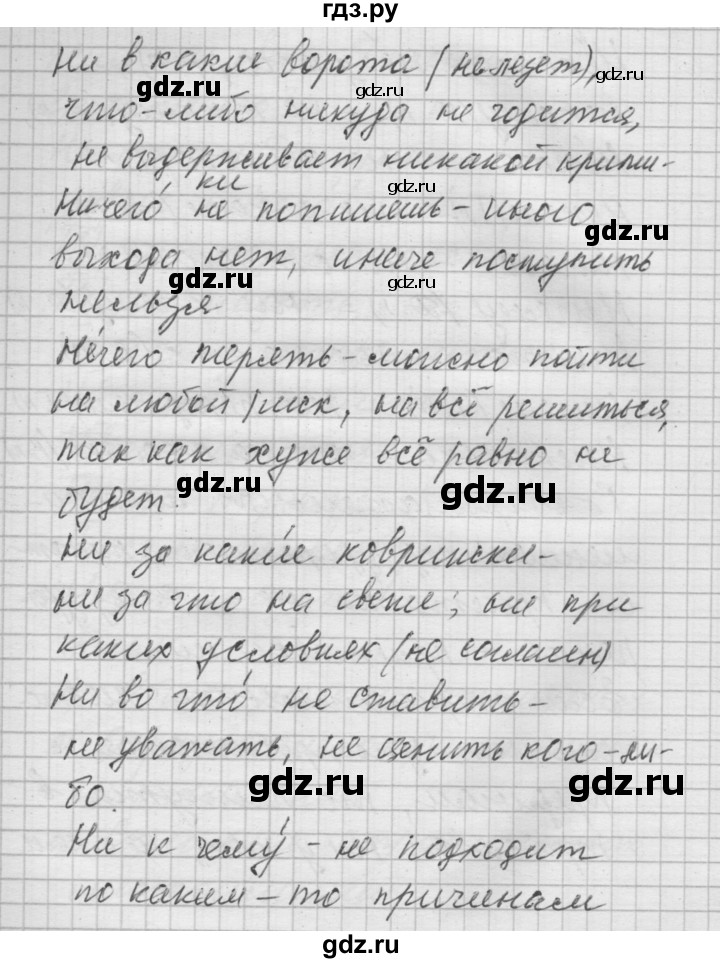 гдз.ру
Ни в какие ворота (не лезет),
gdz.ru gdz.ru
что-либо никуда не годится,
gdz.ru
не выдерживает никакой крити-
ки
gdz.ru
Ничего́ не попишешь - иного
gdz.ru
выхода нет, иначе поступить
gdz.ru gdz.ru
нельзя
Не́чего терять - можно пойти
на любой риск, на всё решиться,
так как хуже всё равно не
gdz.ru gdz.ru
будет.
Ни за каки́е коврижки -
ни за что на свете; ни при
каких условиях (не согласен)
Ни во что́ не ставить -
не уважать, не ценить кого-ли-
gdz.ru gdz.ru
бо.
Ни к чему́ - не подходит
по каким-то причинам
gdz.ru